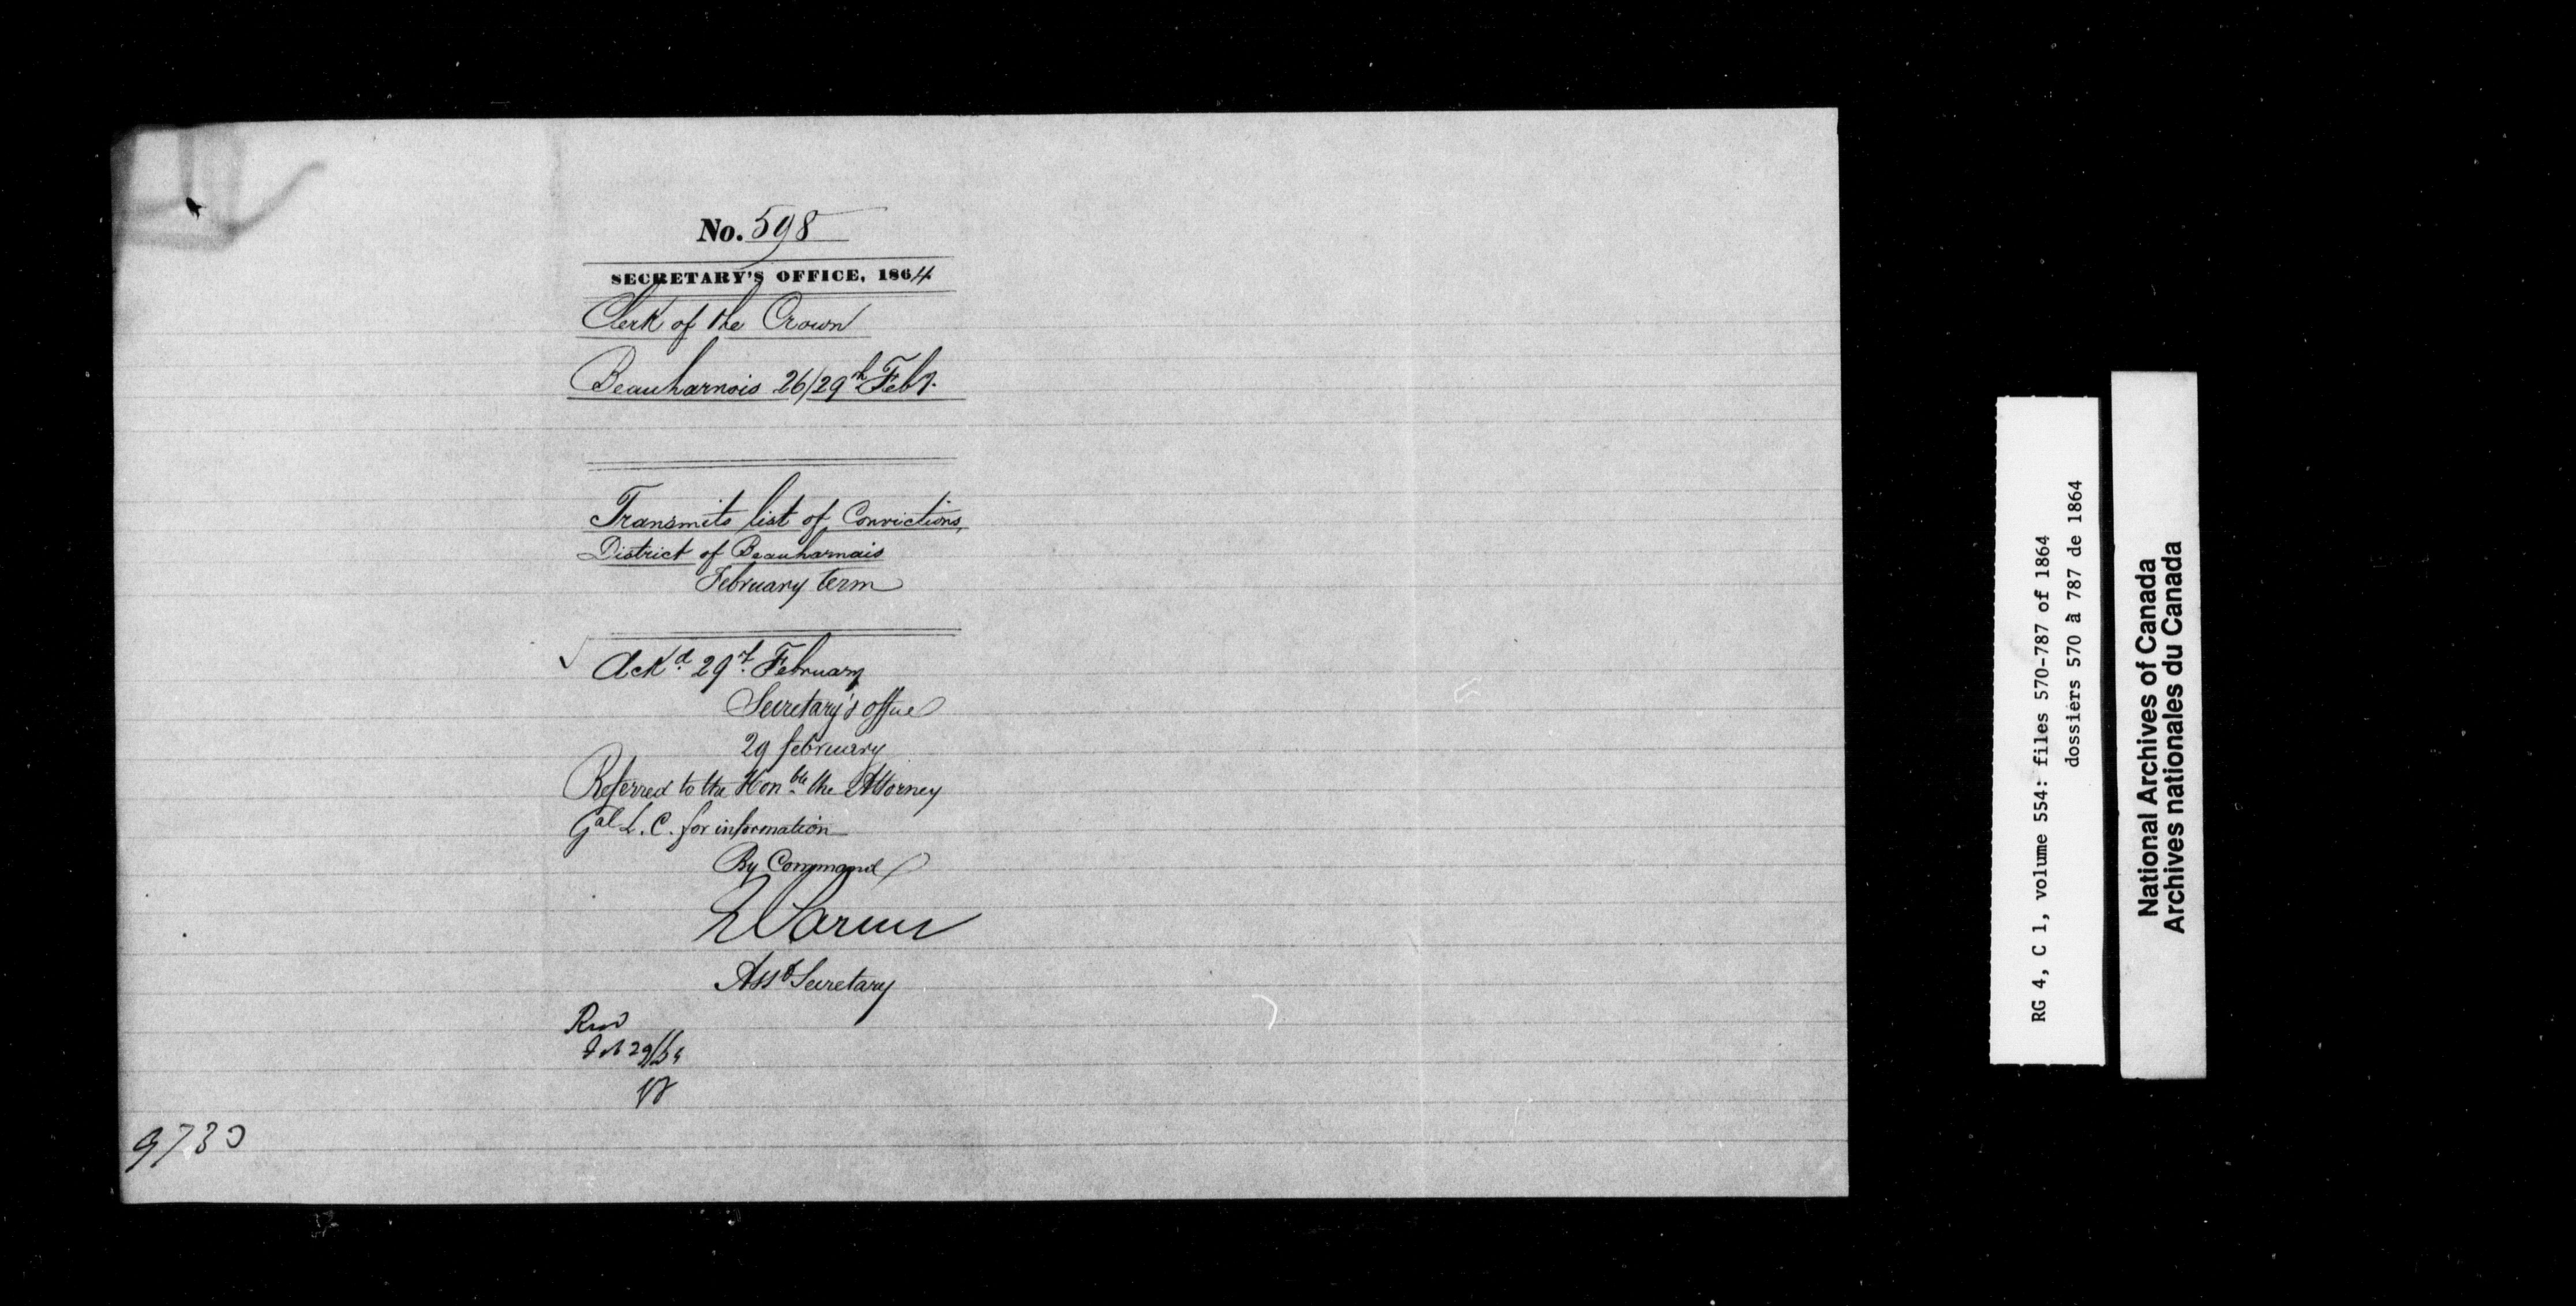 No. 598
SECRETARY'S OFFICE, 1864
Clerk of the Crown
Beauharnois 26/29th Feby.
Transmits list of Convictions,
District of Beauharnais
February term
√ Ackd. 29th. February
Secretary's office
29 february
Referred to the Honble. the Attorney
Gal L. C. for information
By Command
Asst Secretary
Feb 29/64
9730
RG 4, C 1, volume 554: files 570-787 of 1864
dossiers 570 à 787 de 1864
National Archives of Canada
Archives nationales du Canada